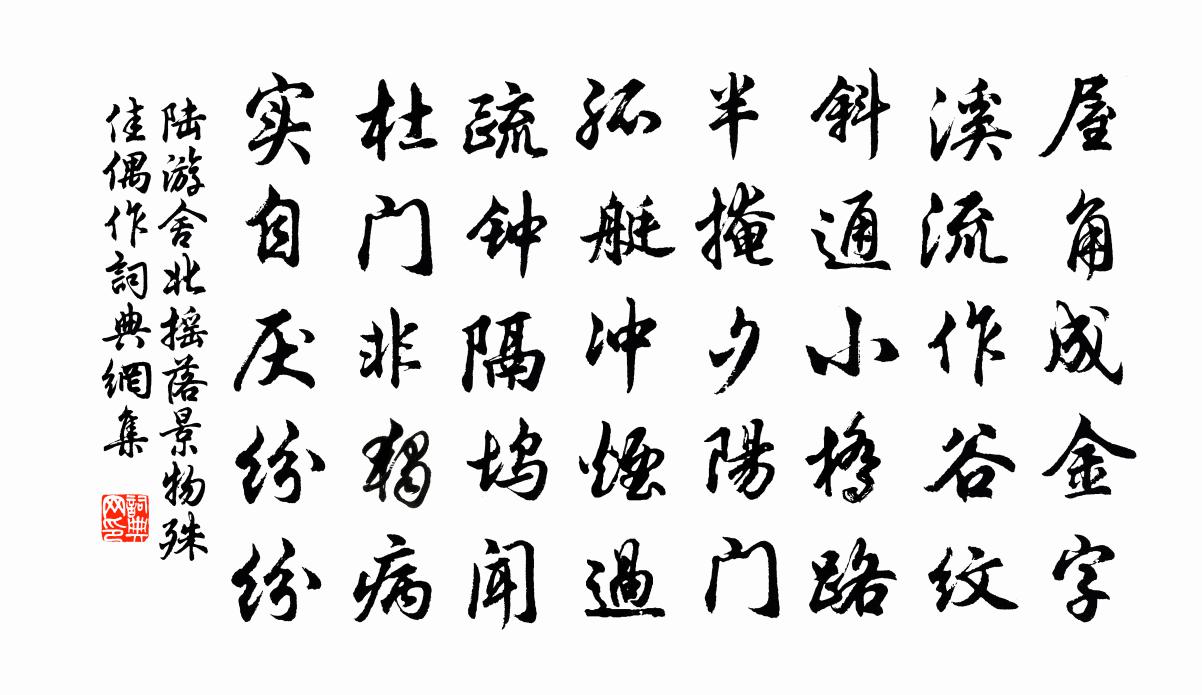 屋角成金字
溪流作谷纹
斜通小桥路
半掩夕陽门
孤艇冲煙過
疏钟隔坞闻
杜门非独病
实自厌纷纷
陆游舍北摇落景物殊
佳偶作詞典網集
詞典网印